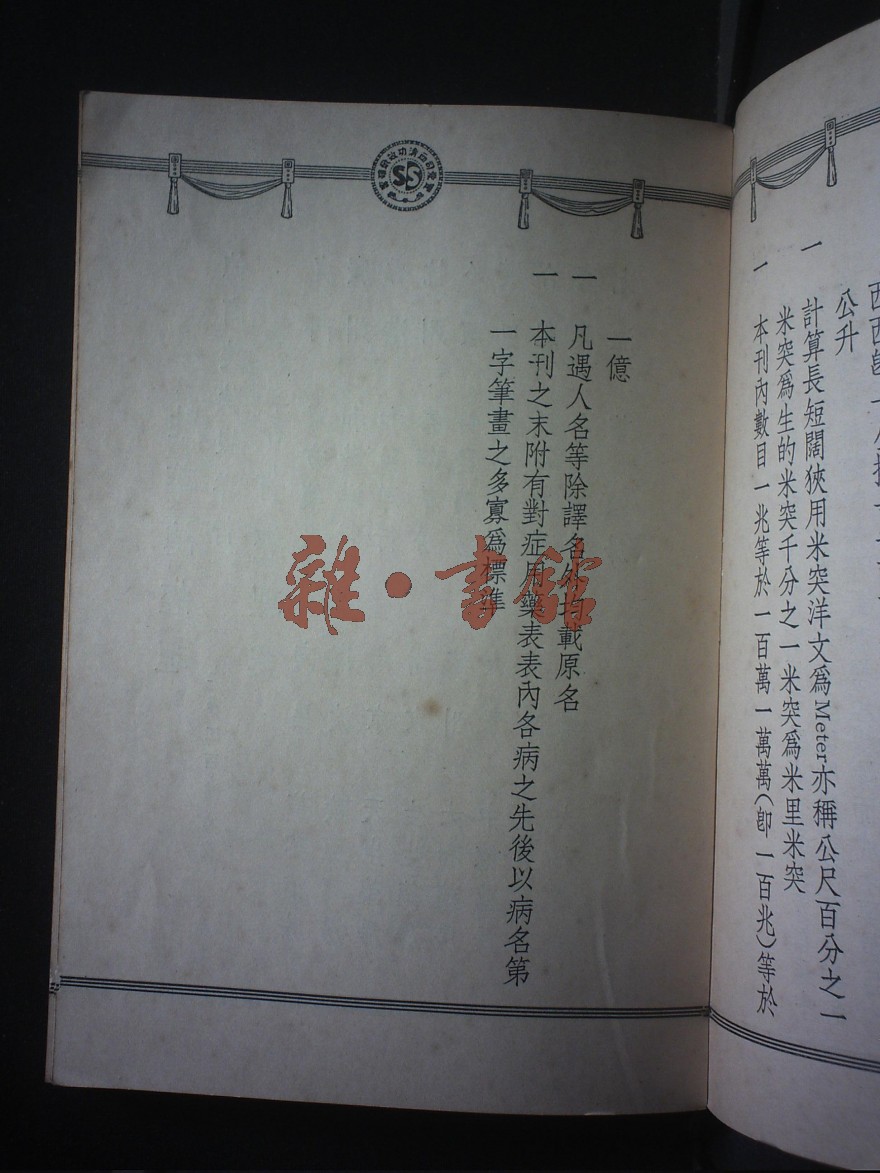 公升
一 計算長短闊狹用米突洋文爲Meter亦稱公尺百分之一
米突爲生的米突千分之一米突爲米里米突
一 本刊內數目一兆等於一百萬一萬萬(卽一百兆)等於
一億
一 凡遇人名等除譯名外均載原名
一 本刊之末附有對症用藥表表內各病之先後以病名第
一字筆畫之多寡爲標準
雜·書館